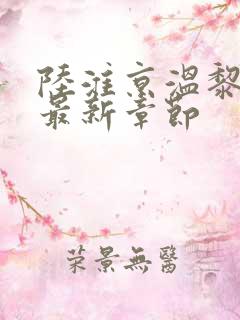 陸淮京溫黎
最新章節
荣景無醫